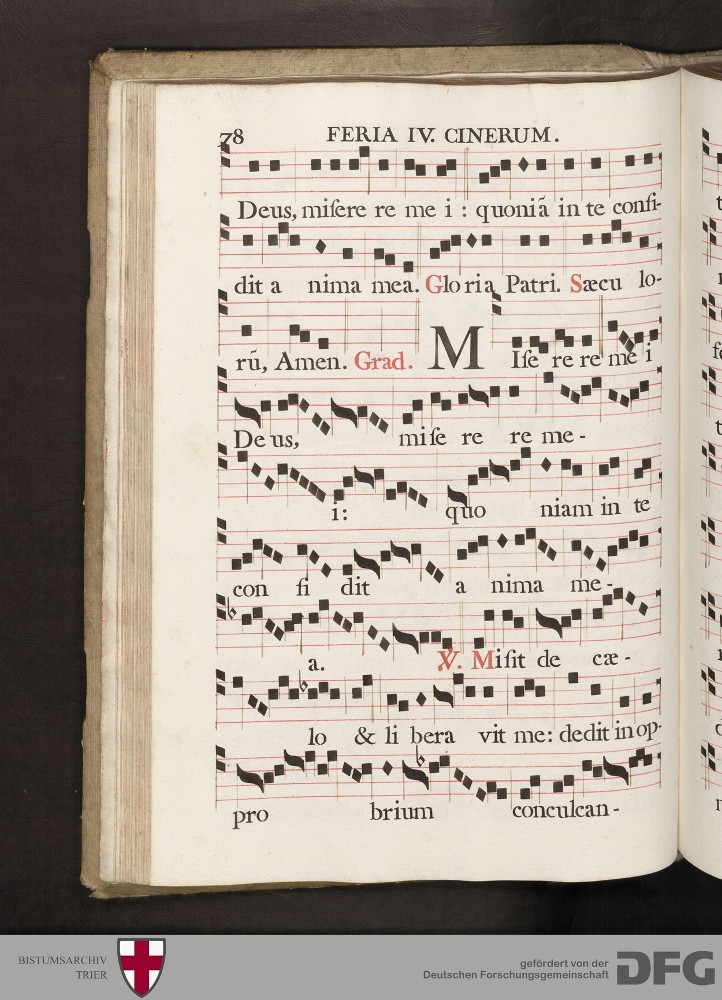 78 FERIA IV. CINERUM.
Deus, miſere re me i : quoniã in te confi-
dit a nima mea. Glo ria Patri. Sæcu lo-
rũ, Amen. Grad. M Iſe re re me i
De us, miſe re re me -
i: quo niam in te
con fi dit a nima me -
a. ℣. Miſit de cæ -
lo & li bera vit me: dedit in op-
pro brium conculcan -
BISTUMSARCHIV
TRIER
gefördert von der
Deutschen Forschungsgemeinschaft
DFG